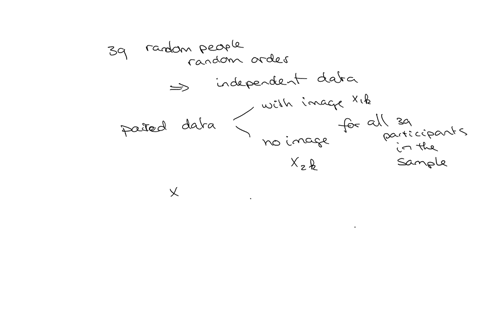 39 random people
random order
⇒ independent data
with image x₁k
paired data
for all 39
participants
in the
sample
no image
x₂k
x